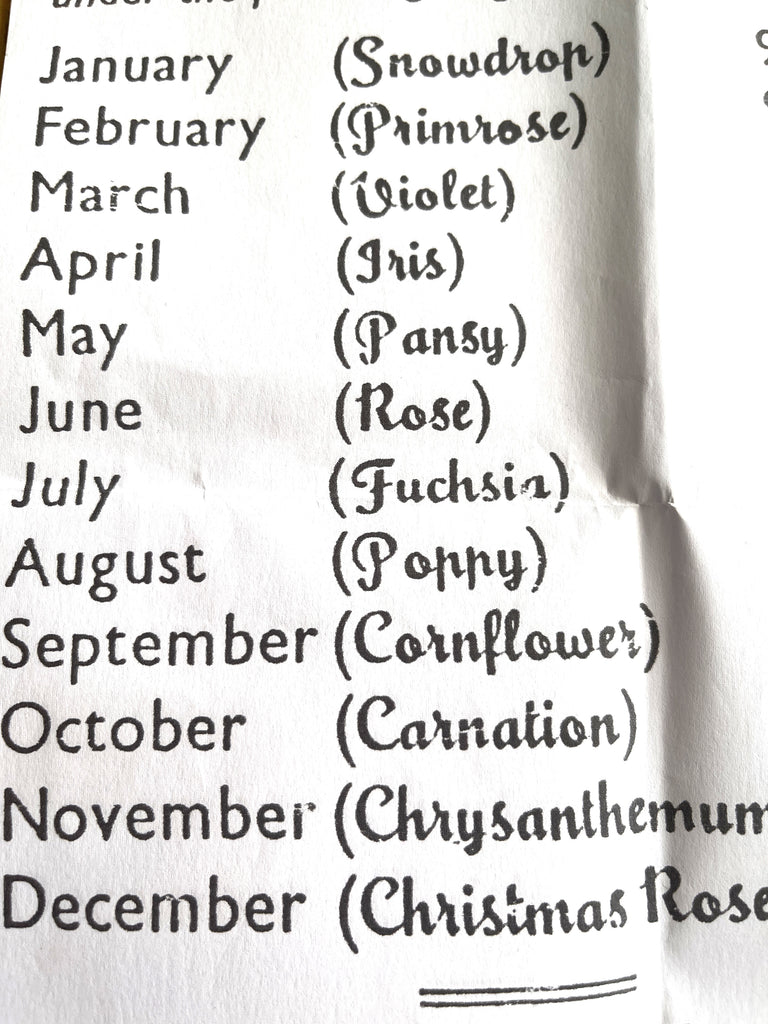 under the
January (Snowdrop)
February (Primrose)
March (Violet)
April (Iris)
May (Pansy)
June (Rose)
July (Fuchsia)
August (Poppy)
September (Cornflower)
October (Carnation)
November (Chrysanthemum
December (Christmas Rose